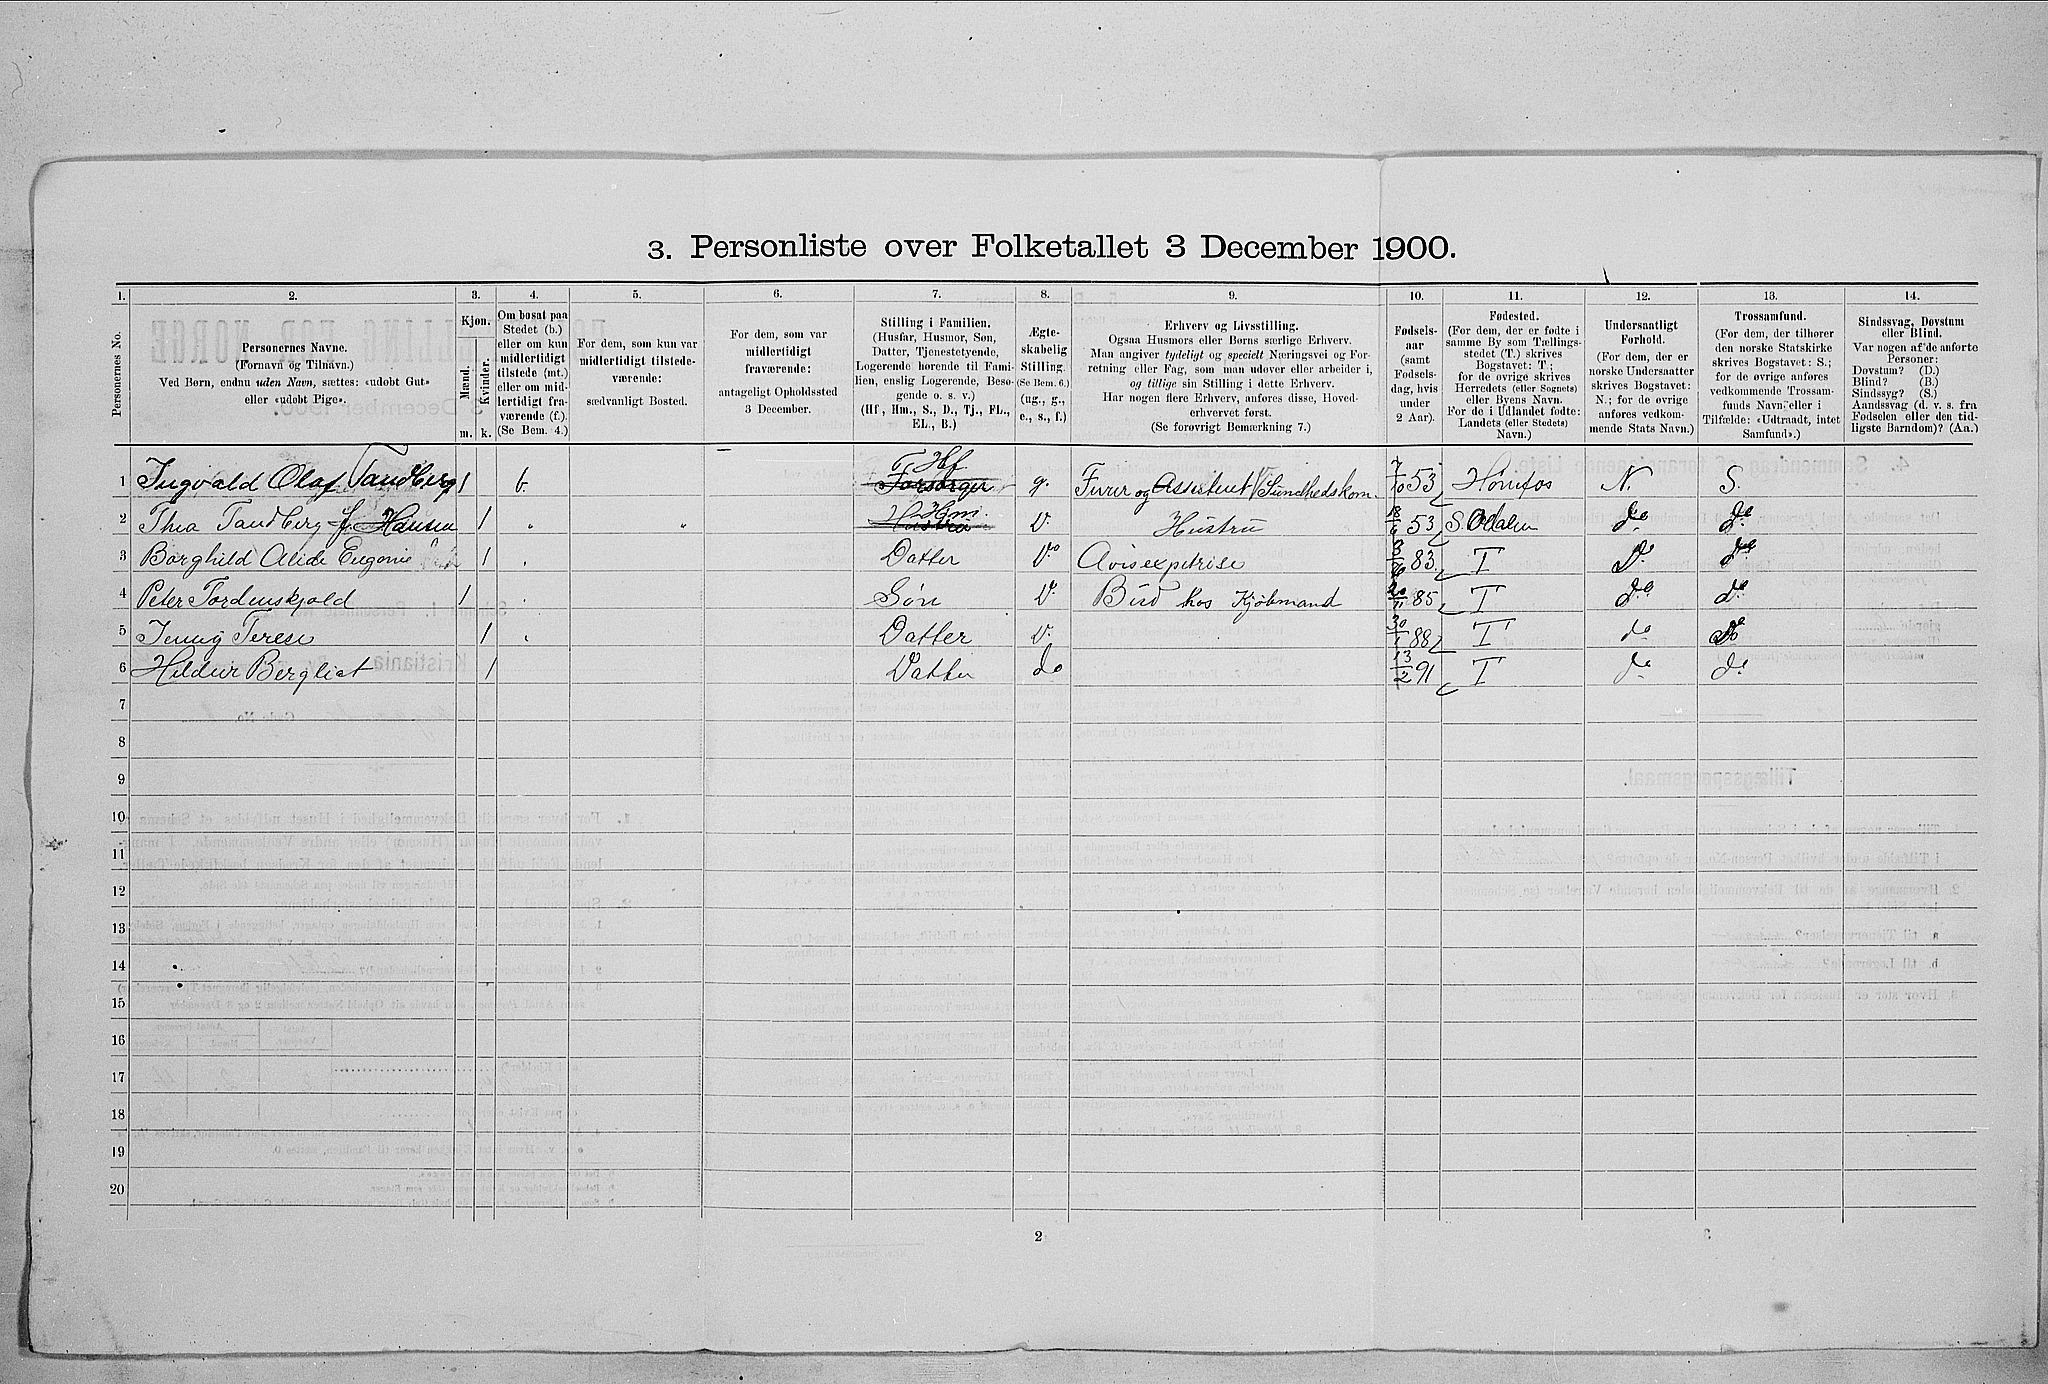 3. Personliste over Folketallet 3 December 1900.
1. 2. 3. 4. 5. 6. 7. 8. 9. 10. 11. 12. 13. 14.
Personernes No.
Personernes Navne.
(Fornavn og Tilnavn.)
Ved Børn, endnu uden Navn, sættes: «udøbt Gut»
eller «udøbt Pige».
Kjøn.
Mænd.
Kvinder.
m. k.
Om bosat paa
Stedet (b.)
eller om kun
midlertidigt
tilstede (mt.)
eller om mid-
lertidigt fra-
værende (f.).
(Se Bem. 4.)
For dem, som kun var
midlertidigt tilstede-
værende:
sædvanligt Bosted.
For dem, som var
midlertidigt
fraværende:
antageligt Opholdssted
3 December.
Stilling i Familien.
(Husfar, Husmor, Søn,
Datter, Tjenestetyende,
Logerende hørende til Fami-
lien, enslig Logerende, Besø-
gende o. s. v.)
(Hf, Hm., S., D., Tj., FL.,
EL., B.)
Ægte-
skabelig
Stilling.
(Se Bem. 6.)
(ug., g.,
e., s., f.)
Erhverv og Livsstilling.
Ogsaa Husmors eller Børns særlige Erhverv.
Man angiver tydeligt og specielt Næringsvei og For-
retning eller Fag, som man udøver eller arbeider i,
og tillige sin Stilling i dette Erhverv.
Har nogen flere Erhverv, anføres disse, Hoved-
erhvervet først.
(Se forøvrigt Bemærkning 7.)
Fødsels-
aar
(samt
Fødsels-
dag, hvis
under
2 Aar).
Fødested.
(For dem, der er fødte i
samme By som Tællings-
stedet (T.) skrives
Bogstavet: T;
for de øvrige skrives
Herredets (eller Sognets)
eller Byens Navn.
For de i Udlandet fødte:
Landets (eller Stedets)
Navn.)
Undersaatligt
Forhold.
(For dem, der er
norske Undersaatter
skrives Bogstavet:
N.; for de øvrige
anføres vedkom-
mende Stats Navn.)
Trossamfund.
(For dem, der tilhører
den norske Statskirke
skrives Bogstavet: S.;
for de øvrige anføres
vedkommende Trossam-
funds Navn, eller i
Tilfælde: «Udtraadt, intet
Samfund».)
Sindssvag, Døvstum
eller Blind.
Var nogen af de anførte
Personer:
Døvstum? (D.)
Blind? (B.)
Sindssyg? (S.)
Aandssvag (d. v. s. fra
Fødselen eller den tid-
ligste Barndom)? (Aa.)
1 Ingvald Olaf Tandberg 1 b. Forsørger Hf g. Furer og Assistent v/ Sundhedskom. 7/10 53 Hønefos N. S.
2 Thea Tandberg f. Hansen 1 " " Hustru Hm v. Hustru 53 S. Odalen do do
3 Borghild Alide Eugenie 1 " Datter Do 83 T Do do
4 Peter Tordenskjold 1 " Søn D. Bud hos Kjøbmand 20/11 85 T do do
5 Jenny Terese 1 " Datter D. 30/1 88 T do Do
6 Hildur Bergliot 1 Datter do 13/2 91 T do do
7
8
9
10
11
12
13
14
15
16
17
18
19
20
2